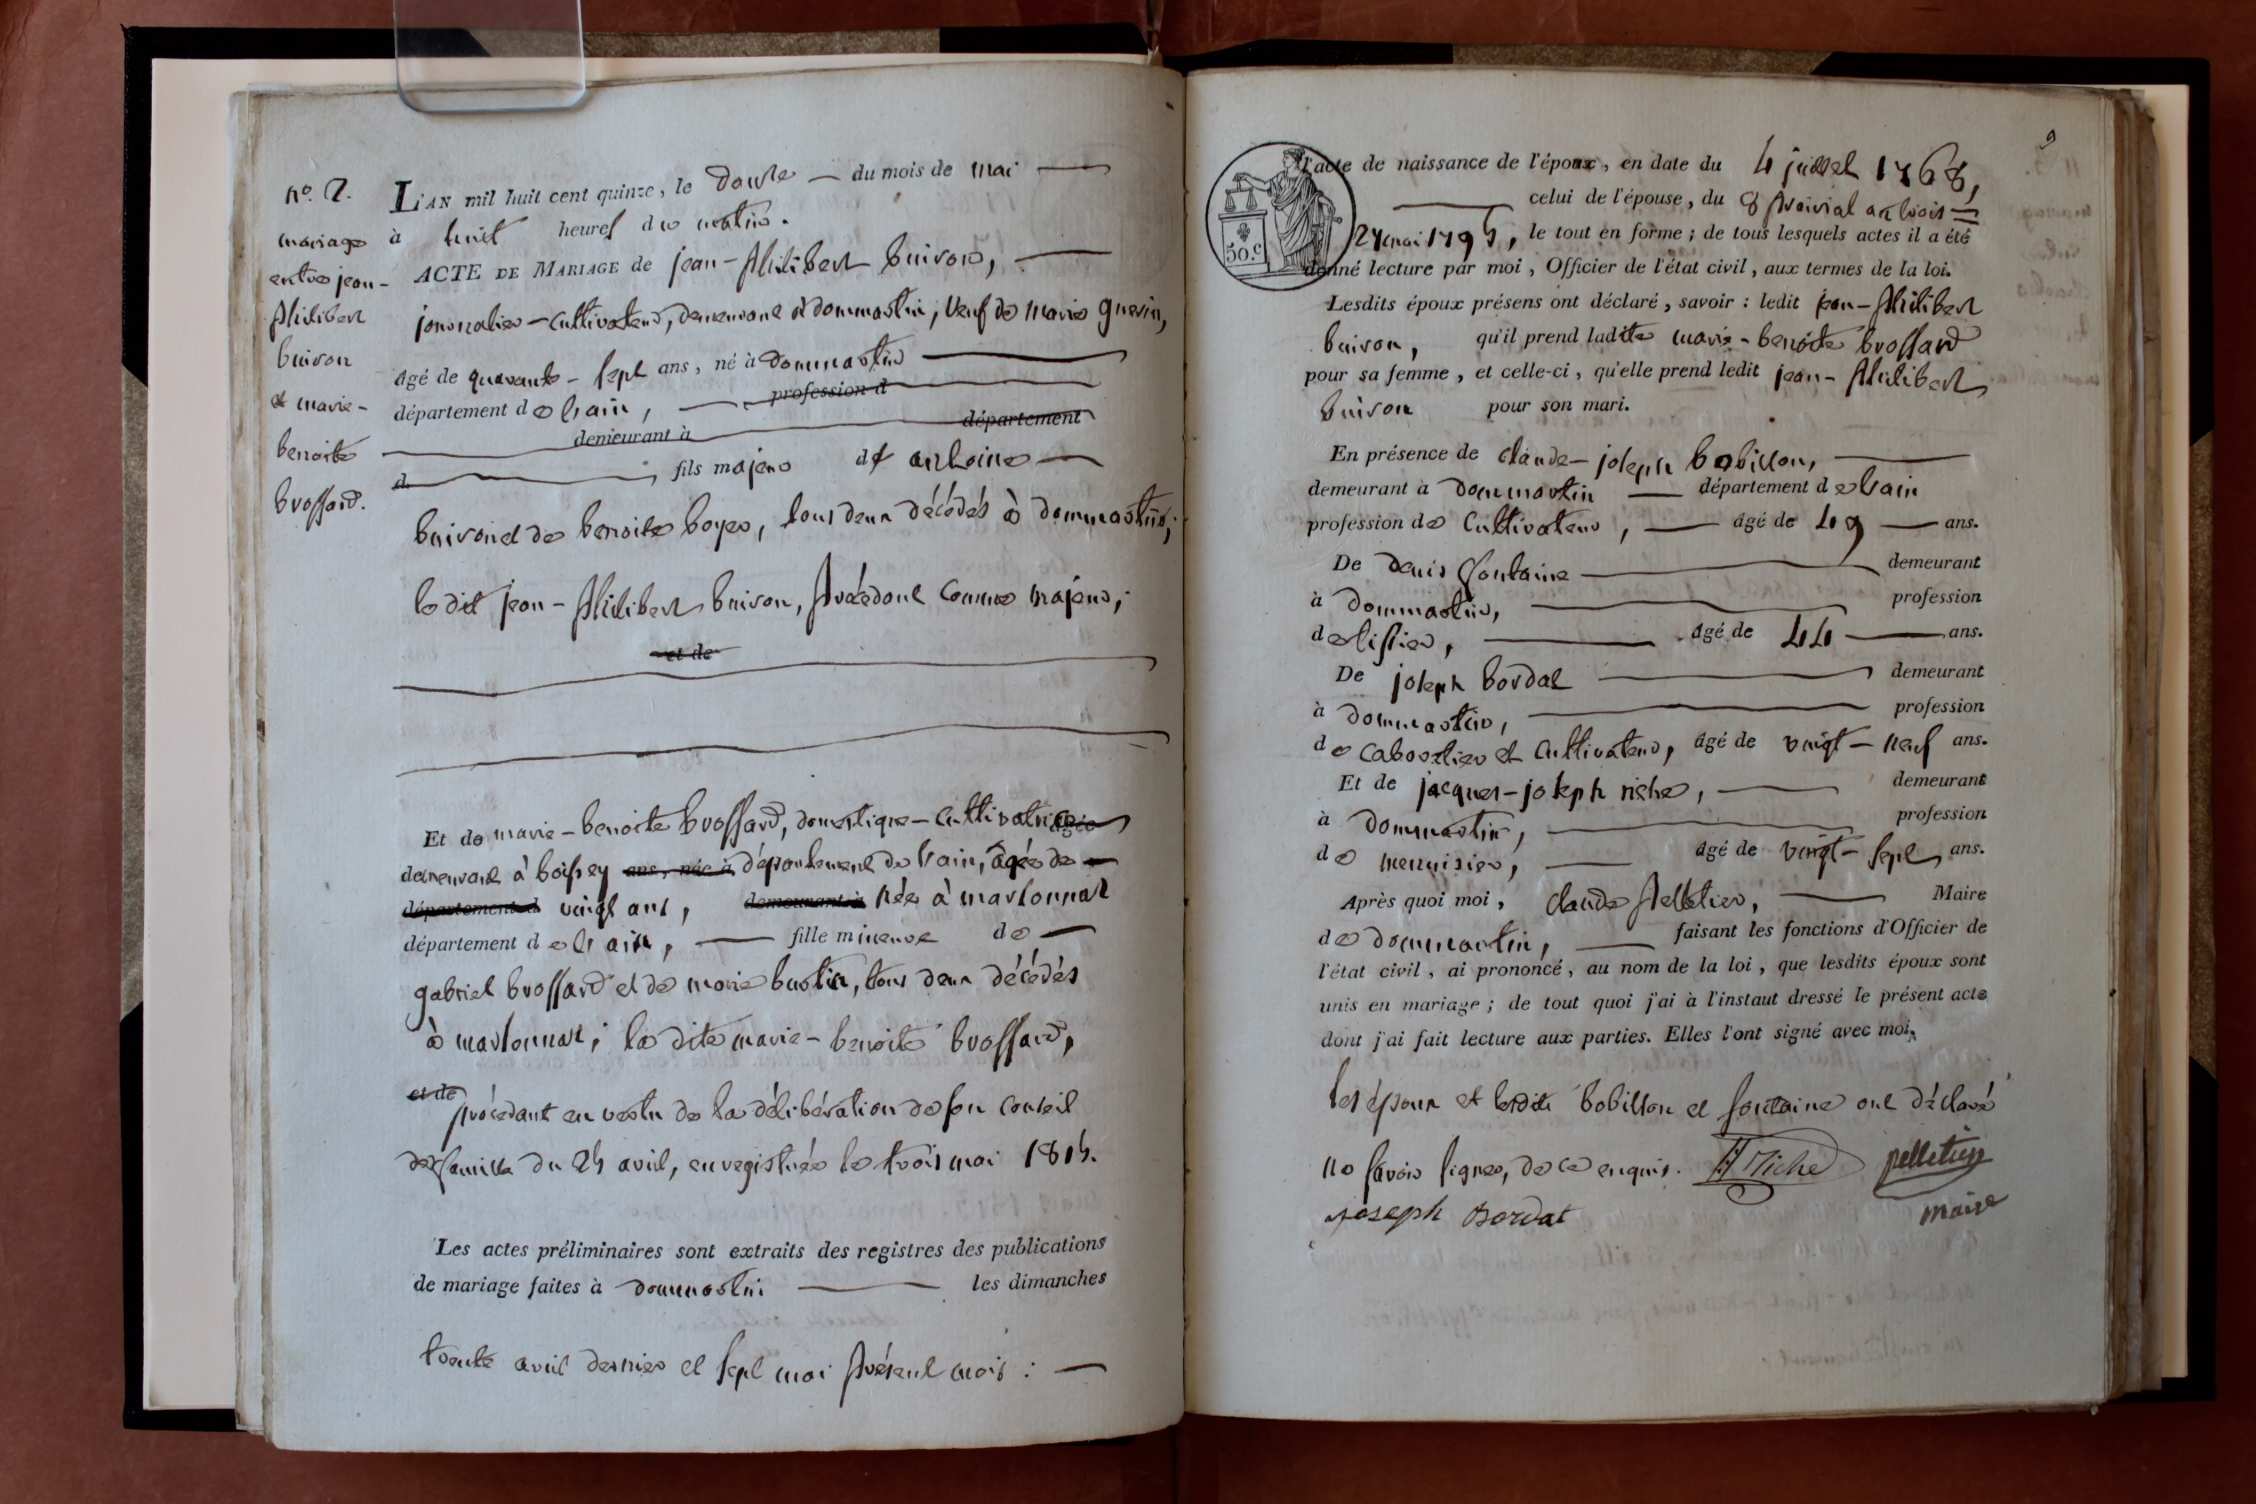 no. 7.
mariage
entre jean-
philibert
buiron
et marie-
benoite
brossard.
L'AN mil huit cent quinze, le douze du mois de mai
à huit heures du matin.
ACTE DE MARIAGE de jean-philibert buiron,
journalier-cultivateur, demeurant à dommartin, veuf de marie guerin,
âgé de quarante-sept ans, né à dommartin
département de l'ain, profession d
demeurant à département
d fils majeur de antoine
buiron et de benoite boyer, tous deux décédés à dommartin,
le dit jean-philibert buiron, procédant comme majeur,
et de
Et de marie-benoite brossard, domestique-cultivatrice âgée
demeurant à boissey ans, née à département de l'ain, âgée de
département d vingt ans, demeurant à née à marsonnas
département de l'ain, fille mineure de
gabriel brossard et de marie bustin, tous deux décédés
à marsonnas; la dite marie-benoite brossard,
et de procédant en vertu de la délibération de son conseil
de famille du 25 avril, enregistrée le trois mai 1815.
Les actes préliminaires sont extraits des registres des publications
de mariage faites à dommartin les dimanches
trente avril dernier et sept mai présent mois :
9
50.c
l'acte de naissance de l'époux, en date du 4 juillet 1768,
celui de l'épouse, du 8 prairial an trois =
27 mai 1795, le tout en forme; de tous lesquels actes il a été
donné lecture par moi, Officier de l'état civil, aux termes de la loi.
Lesdits époux présens ont déclaré, savoir : ledit jean-philibert
buiron, qu'il prend ladite marie-benoite brossard
pour sa femme, et celle-ci, qu'elle prend ledit jean-philibert
buiron pour son mari.
En présence de claude-joseph bobillon,
demeurant à dommartin département de l'ain
profession de cultivateur, âgé de 49 ans.
De denis fontaine demeurant
à dommartin, profession
de tissier, âgé de 44 ans.
De joseph bordat demeurant
à dommartin, profession
de cabartier et cultivateur, âgé de vingt-neuf ans.
Et de jacques-joseph riche, demeurant
à dommartin, profession
de menuisier, âgé de vingt-sept ans.
Après quoi moi, claude pelletier, Maire
de dommartin, faisant les fonctions d'Officier de
l'état civil, ai prononcé, au nom de la loi, que lesdits époux sont
unis en mariage; de tout quoi j'ai à l'instaut dressé le présent acte
dont j'ai fait lecture aux parties. Elles l'ont signé avec moi.
les époux et lesdits bobillon et fontaine ont déclaré
ne savoir signer, de ce enquis. Riche pelletier
joseph Bordat maire